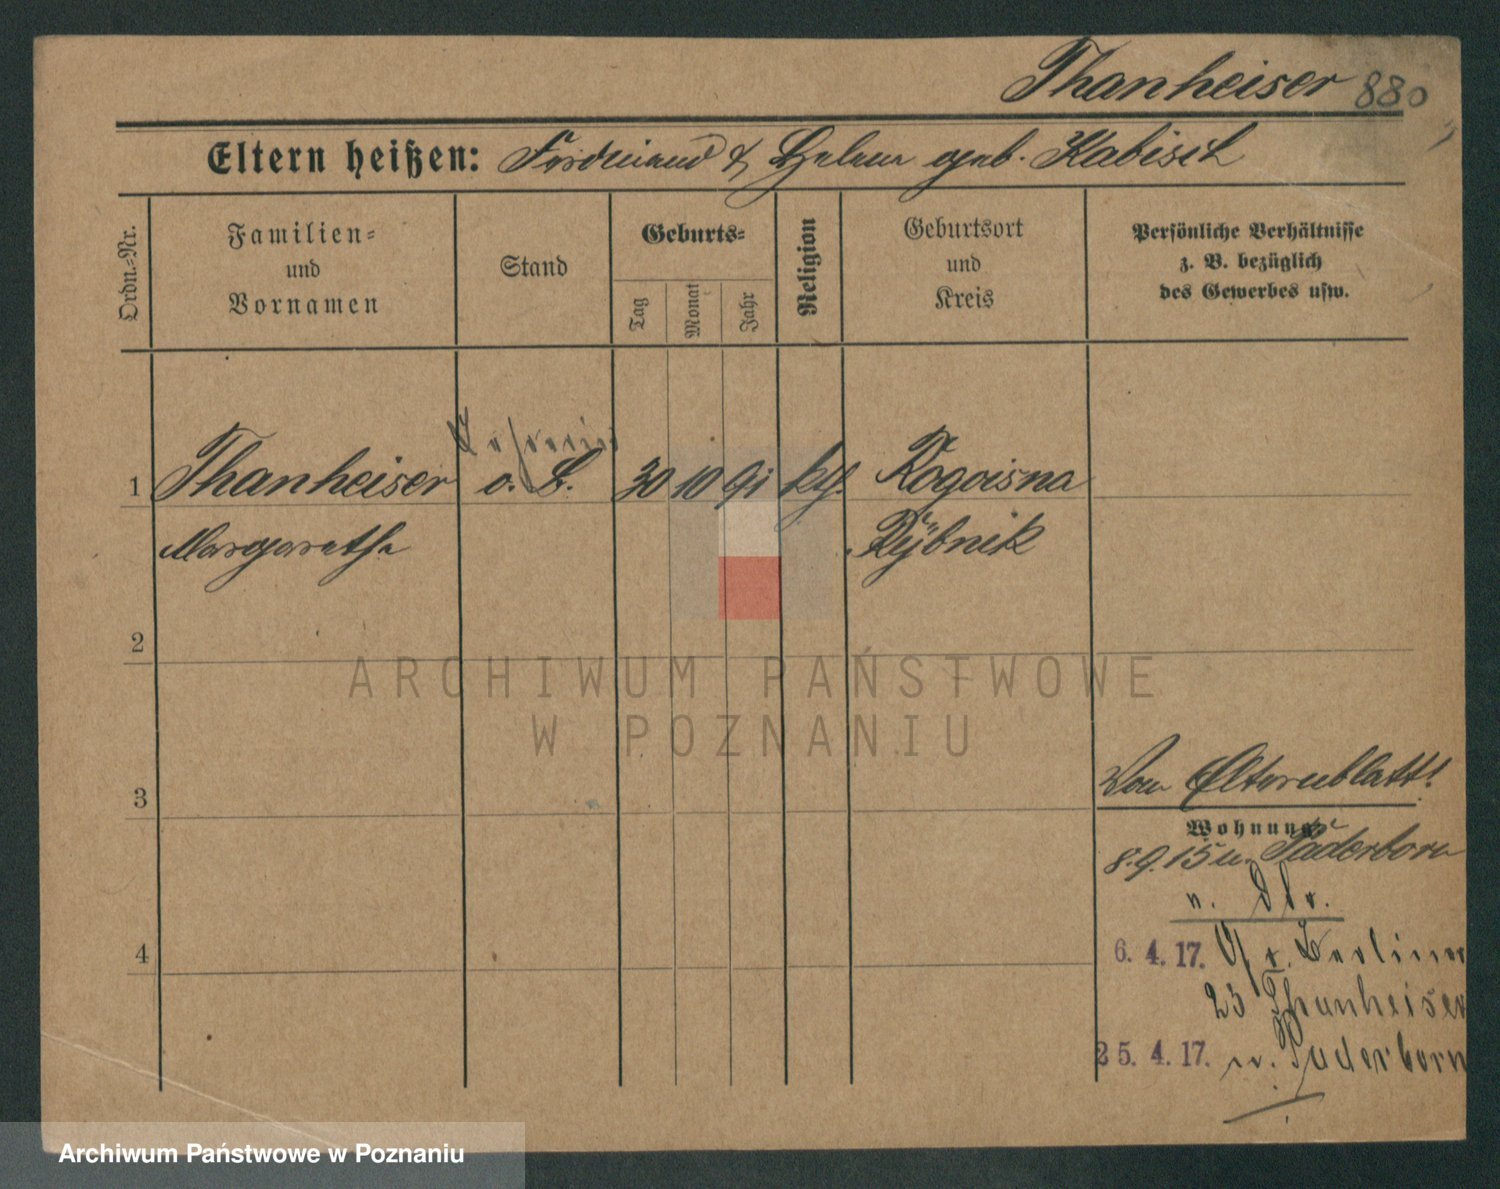 Thanheiser 880
Eltern heißen: Ferdinand & Helene geb. Kabisch
Ordn.-Nr.
Familien-
und
Vornamen
Stand
Geburts-
Tag
Monat
Jahr
Religion
Geburtsort
und
Kreis
Persönliche Verhältnisse
z. B. bezüglich
des Gewerbes usw.
1 Thanheiser o. B. 30 10 91 kth. Rogoisna
Margarethe Rÿbnik
2
3
4
ARCHIWUM PAŃSTWOWE
W POZNANIU
Vom Elternblatt!
Wohnung
8.9.15 n. Paderborn
6. 4. 17. Berliner
23 Thanheiser
25. 4. 17. n. Paderborn
Archiwum Państwowe w Poznaniu